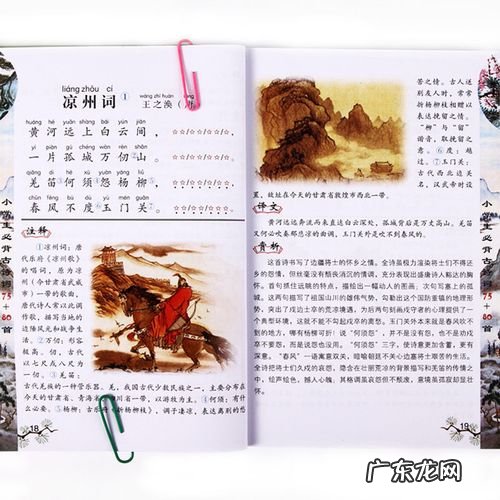 liáng zhōu cí
凉州词①
wáng zhī huàn
王之涣
huáng hé yuǎn shàng bái yún jiān
黄河远上白云间，
yí piàn gū chéng wàn rèn shān
一片孤城万仞②山。
qiāng dí hé xū yuàn yáng liǔ
羌笛③何须④怨杨柳⑤，
chūn fēng bú dù yù mén guān
春风不度⑥玉门关⑦。
注释
①凉州词：唐
代乐府《凉州歌》
的唱词，原为凉州
（今甘肃省武威
市）一带的歌曲，
唐代诗人常以此调
作歌，描写当地的
边塞风光和战争生
活。②万仞：形容
极高。仞，古代
以七尺或八尺为
一仞。③羌笛：
古代羌族的一种管乐器。羌，我国古代少数民族之一，主要分布在
今天的甘肃省、青海省、四川省一带，以游牧为主。④何须：有什
么必要。⑤杨柳：古乐府《折杨柳枝》，调子凄凉，表达离别的愁
18
苦之情。古人送
别友人时，常常
折杨柳枝相赠以
表达挽留之情。
“柳”与“留”
谐音，取挽留之
意。⑥度：越
过。⑦玉门关：
古代西北边关
名，汉武帝时设
置，故址在今天的甘肃省敦煌市西北一带。
译文
黄河远远奔流而来直达白云深处，孤城背后是万丈高山。羌笛
又何必吹奏那悲凉的曲调，玉门关外是吹不到春风的。
赏析
这首诗书写了边疆将士的怀乡之情。全诗虽极力渲染将士们不得还
乡的怨情，但丝毫没有颓丧消沉的情调，充分表现出盛唐诗人豁达的胸
怀。首句抓住远眺的特点，描绘出一幅动人的图画；次句写塞上的孤
城。这两句描写了祖国山川的雄伟气势，勾勒出这个国防重镇的地理形
势，突出了戍边士卒的荒凉境遇，为后两句刻画戍守者的心理提供了一
个典型环境，这就不能不勾起戍卒的离愁。玉门关外本来就是春风吹不
到的地方，哪有杨柳可折！说“何须怨”，并不是没有怨，也不是劝戍
卒不要怨，而是说怨也没用。“何须怨”三字，使诗意更加含蓄，更有
深意。“春风”一语寓意双关，暗喻朝廷不关心边塞士卒艰苦的生活。
全诗把将士们久戍的哀怨，隐含在壮丽荒凉的背景描写和羌笛的传情之
中，绘声绘色，撼人心魄；其格调虽哀怨但不颓废，意境虽孤寂却悲壮
怀。
19
小学生必背古诗词75+80首
小学生必背古诗词75+80首
广东龙网